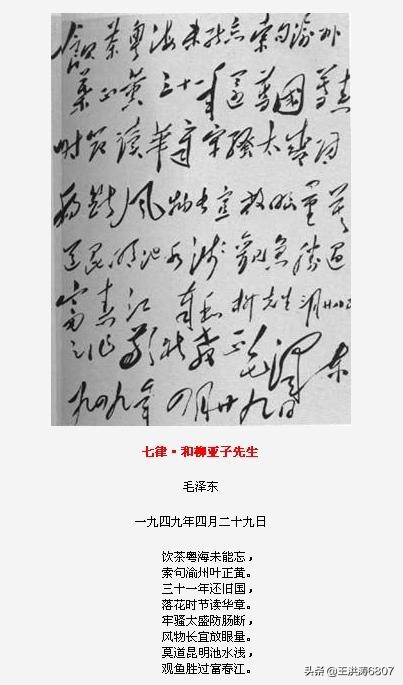 飲茶粤海未能忘索句渝州
葉正黄三十一年還舊國落花
时节读華章牢骚太盛防
肠断风物长宜放眼量莫
道昆明池水浅觀魚勝过
富春江 奉和柳先生三月廿八日
之作敬祈教正 毛泽东
一九四九年四月廿九日
七律·和柳亚子先生
毛泽东
一九四九年四月二十九日
饮茶粤海未能忘，
索句渝州叶正黄。
三十一年还旧国，
落花时节读华章。
牢骚太盛防肠断，
风物长宜放眼量。
莫道昆明池水浅，
观鱼胜过富春江。
头条 @王洪涛6807